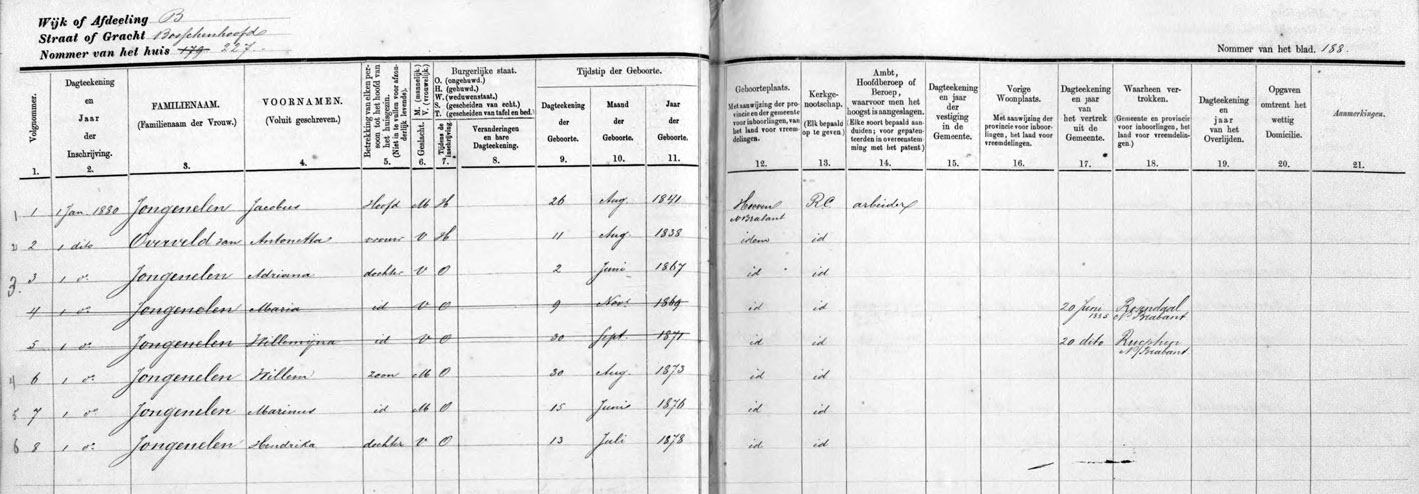 Wijk of Afdeeling B
Straat of Gracht Bosschenhoofd
Nommer van het huis 179 227
Nommer van het blad. 188.
Volgnommer. 1.
Dagteekening en Jaar der Inschrijving. 2.
FAMILIENAAM. (Familienaam der Vrouw.) 3.
VOORNAMEN. (Voluit geschreven.) 4.
Betrekking van elken persoon tot het hoofd van het huisgezin. (Niet in te vullen voor afzonderlijk levende). 5.
Geslacht. M. (mannelijk.) V. (vrouwelijk.) 6.
Burgerlijke staat.
O. (ongehuwd.)
H. (gehuwd.)
W. (weduwenstaat.)
S. (gescheiden van echt.)
T. (gescheiden van tafel en bed.)
Tijdens de inschrijving. 7.
Veranderingen en hare Dagteekening. 8.
Tijdstip der Geboorte.
Dagteekening der Geboorte. 9.
Maand der Geboorte. 10.
Jaar der Geboorte. 11.
Geboorteplaats. Met aanwijzing der provincie en der gemeente voor inboorlingen, van het land voor vreemdelingen. 12.
Kerkgenootschap. (Elk bepaald op te geven.) 13.
Ambt, Hoofdberoep of Beroep, waarvoor men het hoogst is aangeslagen. (Elke soort bepaald aanduiden; voor gepatenteerden in overeenstemming met het patent.) 14.
Dagteekening en jaar der vestiging in de Gemeente. 15.
Vorige Woonplaats. Met aanwijzing der provincie voor inboorlingen, het land voor vreemdelingen. 16.
Dagteekening en jaar van het vertrek uit de Gemeente. 17.
Waarheen vertrokken. (Gemeente en provincie voor inboorlingen, het land voor vreemdelingen.) 18.
Dagteekening en jaar van het Overlijden. 19.
Opgaven omtrent het wettig Domicilie. 20.
Aanmerkingen. 21.
1 1 1 Jan. 1880 Jongenelen Jacobus Hoofd M H 26 Aug. 1841 Hoeven N Brabant RC arbeider
2 2 1 dito Overveld van Antonetta vrouw V H 11 Aug 1838 idem id
3 3 1 o. Jongenelen Adriana dochter V O 2 Juni 1867 id id
4 1 o. Jongenelen Maria id V O 9 Nov. 1869 id id 20 Juni 1885 Rozendaal N Brabant
5 1 o. Jongenelen Willemijna id V O 30 Sept. 1871 id id 20 dito Rucphen N/Brabant
4 6 1 o. Jongenelen Willem zoon M O 30 Aug 1873 id id
5 7 1 o. Jongenelen Marinus id M O 15 Junij 1876 id id
6 8 1 o. Jongenelen Hendrika dochter V O 13 Juli 1878 id id